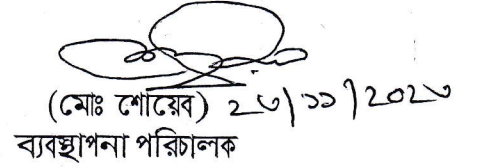 (মোঃ শোয়েব) ২৩/১১/২০২৩
ব্যবস্থাপনা পরিচালক